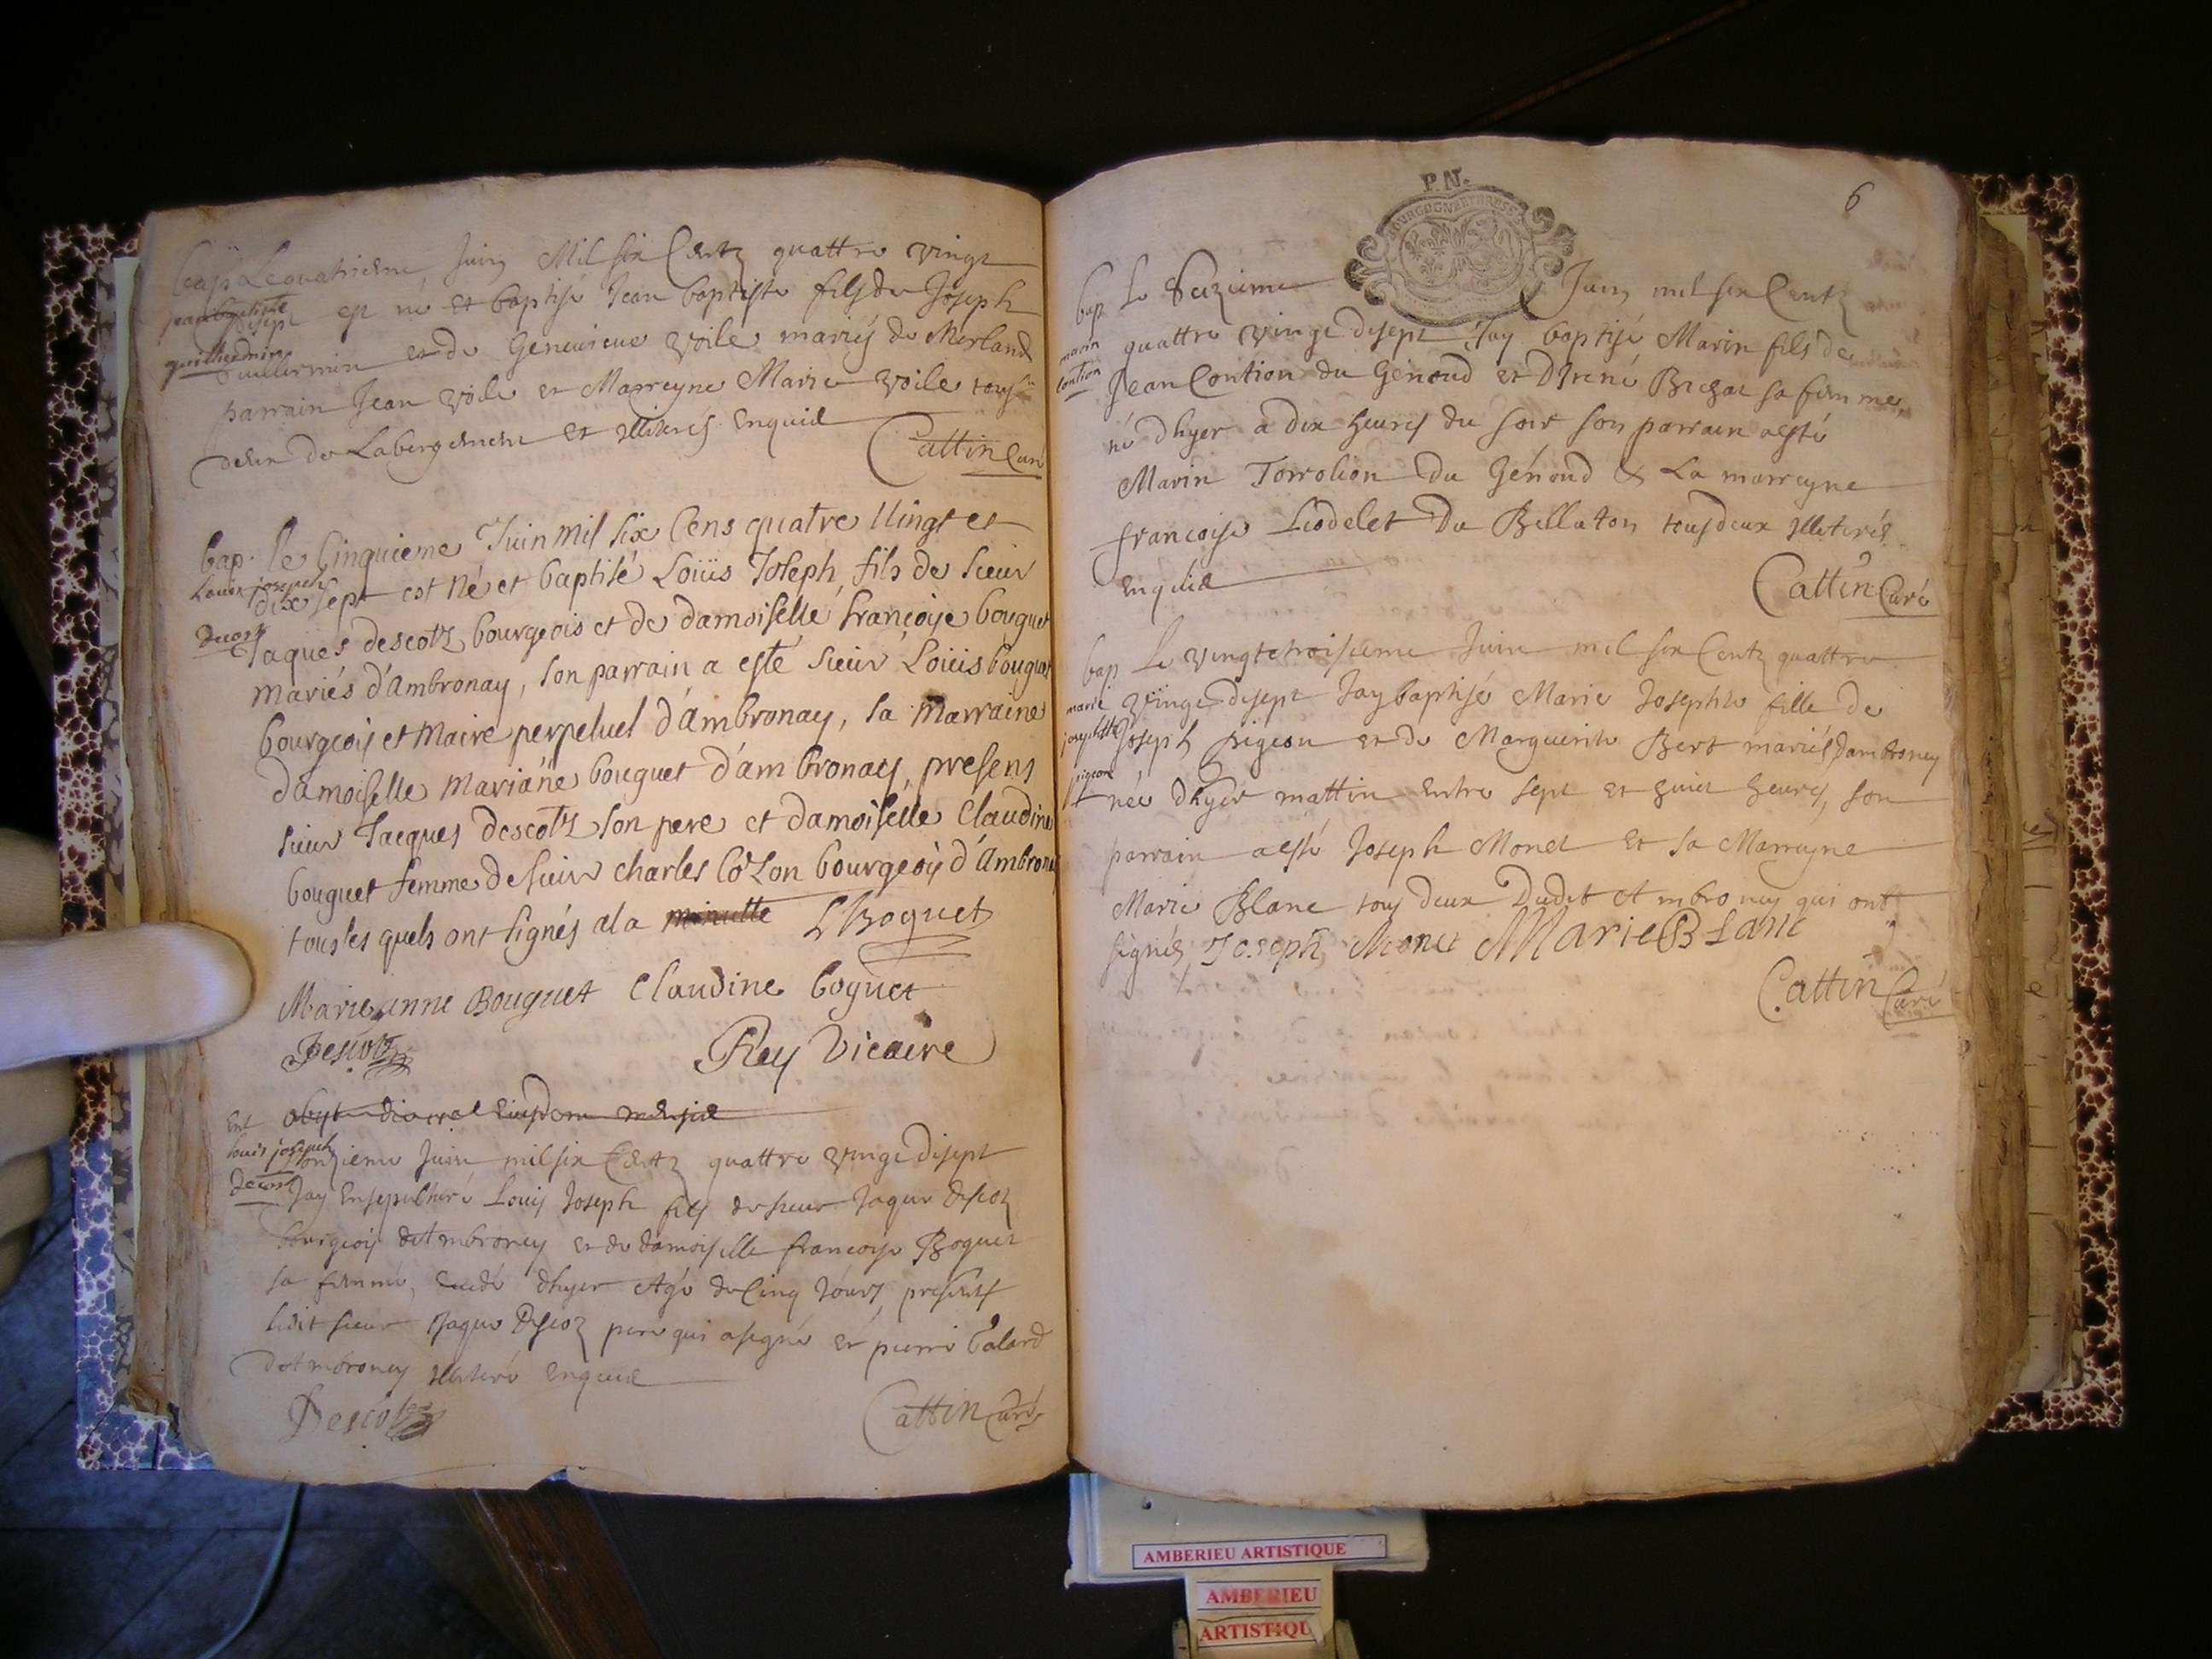 bap. Le quatrieme Juin Mil six Centz quattre vingt
jean baptiste
disept est né et baptisé Jean baptiste fils de Joseph
guilliermin
Guillermin et de Genevieve voile mariés de Merland
parrain Jean voile et Marreyne Marie voile tous
deux de Labergement et illiterés Enquis
Cattin Curé
bap. le Cinquieme Juin mil six Cens quatre Uingt et
Louis joseph
dix sept est né et baptisé Loüis Joseph, fils de sieur
Decost
Jaques descotz bourgeois et de damoiselle françoise bouguet
mariés d'Ambronay, son parrain a esté sieur Loüis bouguet
bourgeois et Maire perpetuel d'Ambronay, sa Marraine
damoiselle Mariane bouguet d'ambronay, presens
sieur Jacques descotz son pere et damoiselle Claudine
bouguet femme de sieur charles Cozon bourgeois d'Ambronay
tous les quels ont signés a la minutte LBoguet
Marie anne Bouguet Claudine boguet
Descotz Rey Vicaire
Ent obyt die ejusdem mensis
louis joseph
onzieme Juin mil six Centz quattre vingt disept
Decost
Jay Ensepulturé Louis Joseph fils de sieur Jaque Descoz
bourgeois d'Ambroney et de damoiselle francoise Boguet
sa femme, dhyer Agé de Cinq Jours, presents
ledit sieur Jaque Descoz pere qui a signé et pierre balard
d'Ambroney illiteré Enquis
Descotz Cattin Curé
P.N.
BOURGOGNE ET BRESSE
6
bap Le Seizieme Juin mil six Centz
marin
quattre vingt disept Jay baptisé Marin fils de
contion
Jean Contion du Genoud et D'Irené Bichat sa femme,
né dhyer a dix heures du soir son parrain a esté
Marin Torrolion du Genoud & La marreyne
francoise Liodelet Du Bellaton tous deux illiterés
Enquis
Cattin Curé
bap Le vingt troisieme Juin mil six Centz quattre
marie
vingt disept Jay baptisé Marie Josephte fille de
josephte
Joseph pigeon et de Marguerite Bert mariés d'ambroney
pigeon
née dhyer mattin Entre sept et huict heures, son
parrain a esté Joseph Monet et sa Marreyne
Marie Blanc tous deux Dudit Ambroney qui ont
signés Joseph Monet Marie Blanc
Cattin Curé
AMBERIEU ARTISTIQUE
AMBERIEU
ARTISTIQU